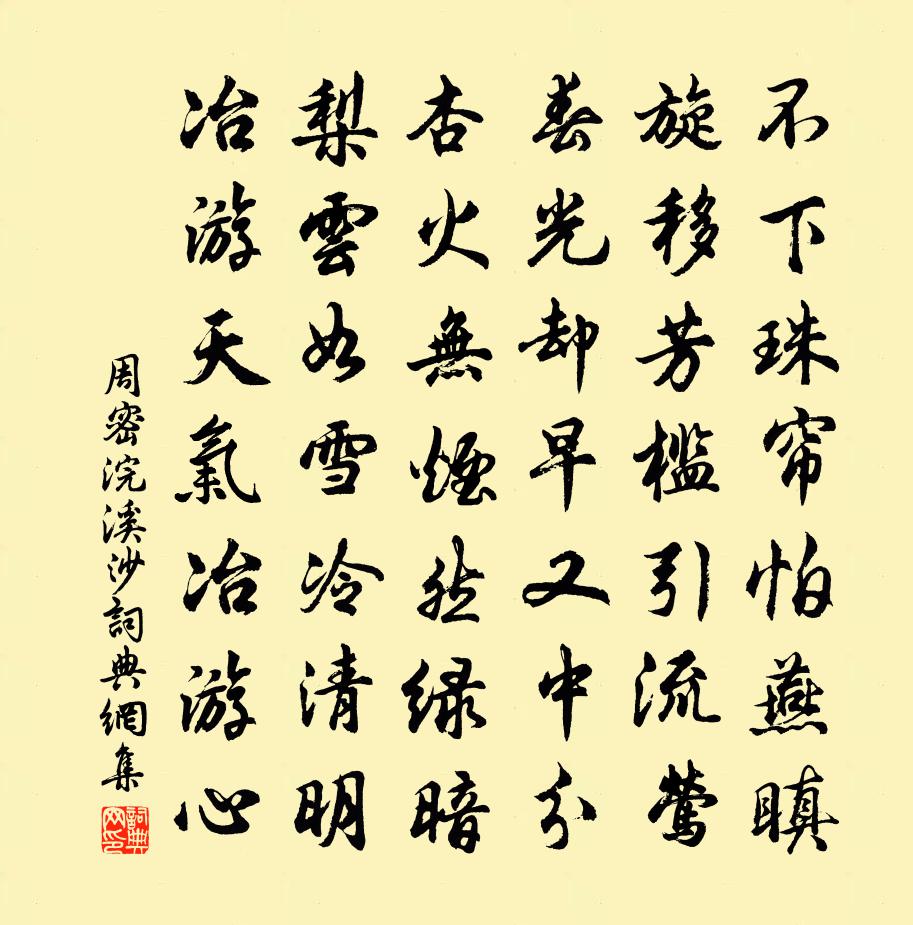 不下珠帘怕燕瞋
旋移芳檻引流鶯
春光却早又中分
杏火無煙然緑暗
梨雲如雪冷清明
冶游天氣冶游心
周密浣溪沙詞典網集
詞典网印